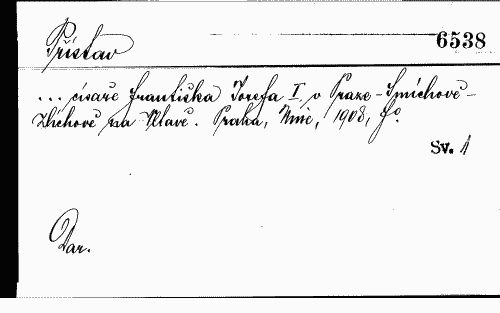 Přístav
6538
... císaře Františka Josefa I. v Praze-Smíchově-
Zlíchově na Vltavě. Praha, Unie, 1908, f°.
Sv. 1
Dar.